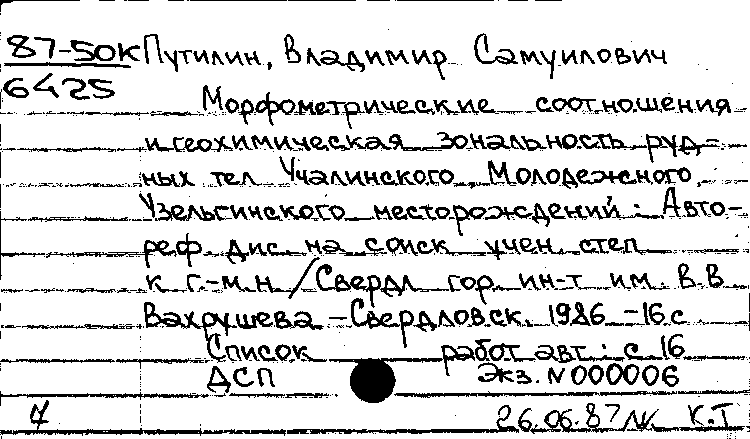 87-50К Путилин, Владимир Самуилович
6425
Морфометрические соотношения
и геохимическая зональность руд-
ных тел Учалинского, Молодежного,
Узельгинского месторождений: Авто-
реф. дис. на соиск учен. степ
к г.-м.н /Свердл гор. ин-т им. В.В
Вахрушева – Свердловск, 1986 – 16 с
Список работ авт.: с 16
ДСП Экз. N 000006
4 26.06.87 К.Т